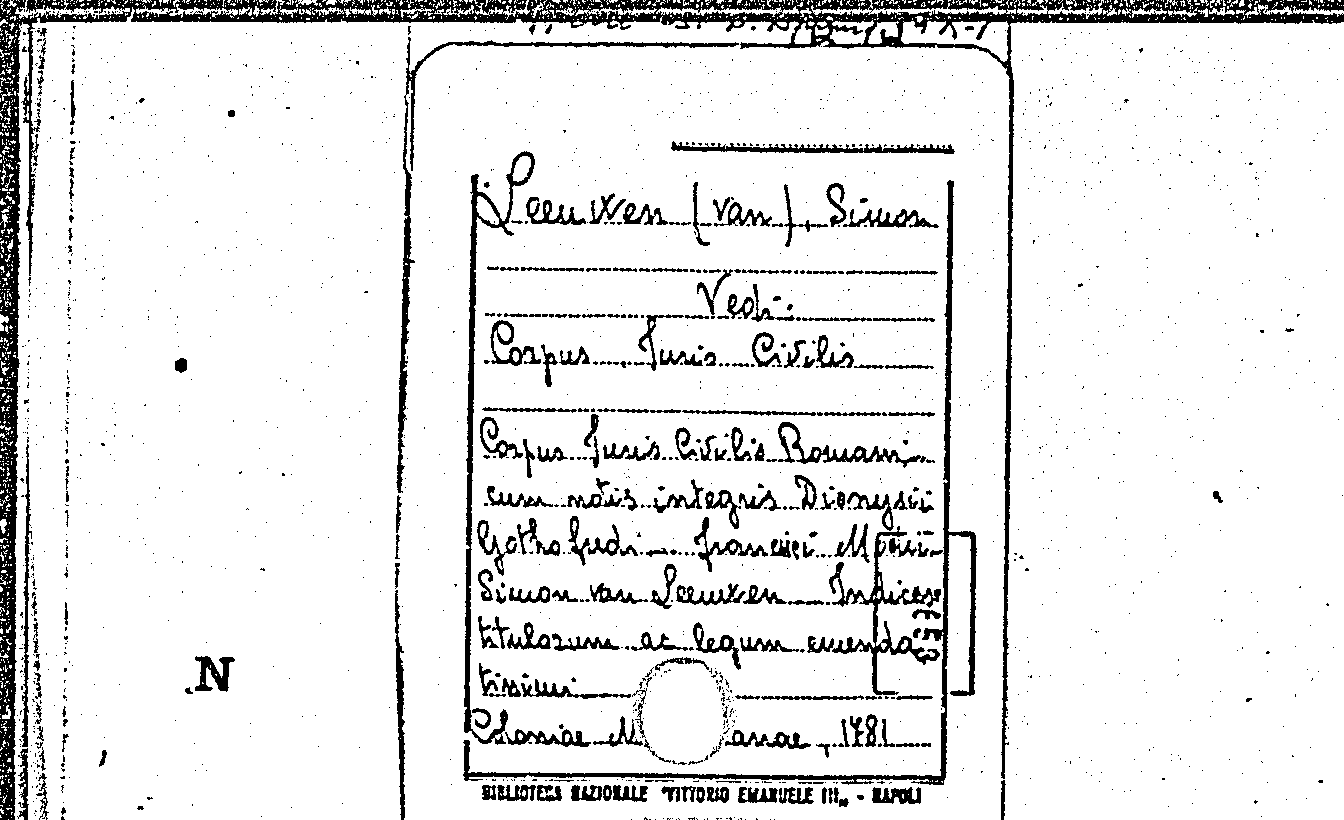 Leeuwen (van), Simon
Vedi:
Corpus Juris Civilis
Corpus Juris Civilis Romani
cum notis integris Dionysii
Gothofredi - Francisci
Simon van Leeuwen - Indices
titulorum ac legum emenda
tissimi
Coloniae M anae, 1781
N
BIBLIOTECA NAZIONALE "VITTORIO EMANUELE III„ - NAPOLI